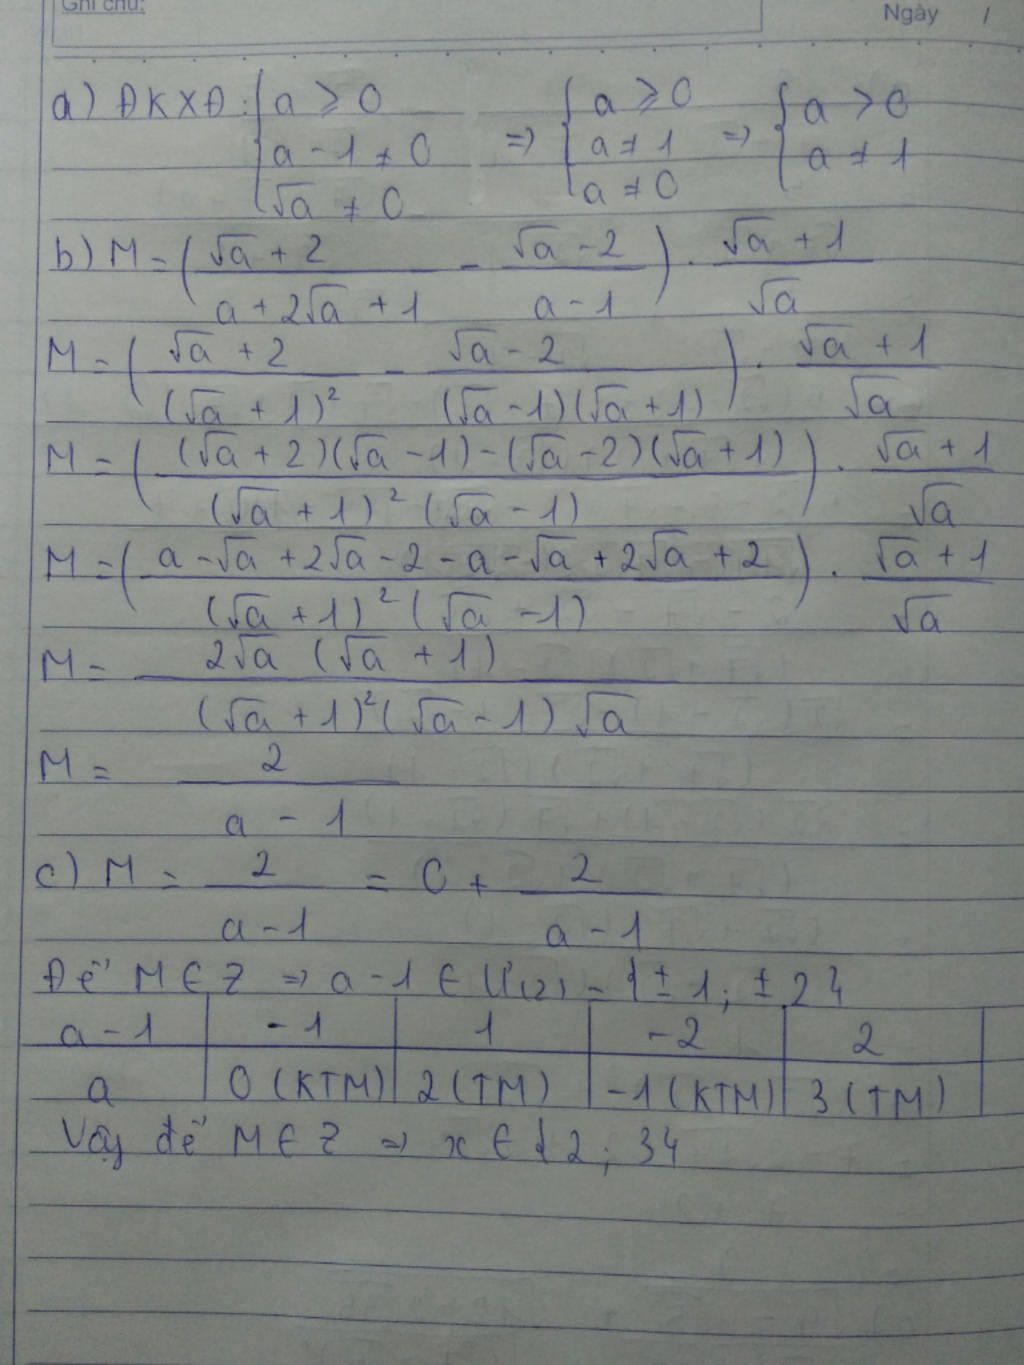 Ghi chú:
Ngày /
a) ĐKXĐ: { a ≥ 0 ; a - 1 ≠ 0 ; √a ≠ 0 => { a ≥ 0 ; a ≠ 1 ; a ≠ 0 => { a > 0 ; a ≠ 1
b) M = ( (√a + 2)/(a + 2√a + 1) - (√a - 2)/(a - 1) ) . (√a + 1)/√a
M = ( (√a + 2)/(√a + 1)² - (√a - 2)/((√a - 1)(√a + 1)) ) . (√a + 1)/√a
M = ( ((√a + 2)(√a - 1) - (√a - 2)(√a + 1))/((√a + 1)²(√a - 1)) ) . (√a + 1)/√a
M = ( (a - √a + 2√a - 2 - a - √a + 2√a + 2)/((√a + 1)²(√a - 1)) ) . (√a + 1)/√a
M = (2√a (√a + 1))/((√a + 1)²(√a - 1)√a)
M = 2/(a - 1)
c) M = 2/(a - 1) = 0 + 2/(a - 1)
Để M ∈ Z => a - 1 ∈ Ư(2) = {±1; ±2}
a - 1 | -1 | 1 | -2 | 2
a | 0 (KTM) | 2 (TM) | -1 (KTM) | 3 (TM)
Vậy để M ∈ Z => x ∈ {2; 3}